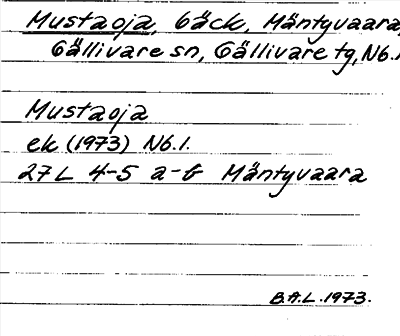 Mustaoja, bäck, Mäntyvaara,
Gällivare sn, Gällivare tg, Nb.l.
Mustaoja
ek (1973) Nb.l.
27L 4-5 a-b Mäntyvaara
B.A.L. 1973.